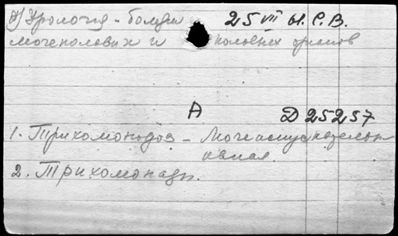 Урология - болезни 25 VII Ы.Р.В.
мочеполовых и половых органов
А Д 25257
1. Трихомонадоз - Мочеиспускательн-
2. Трихомонады.